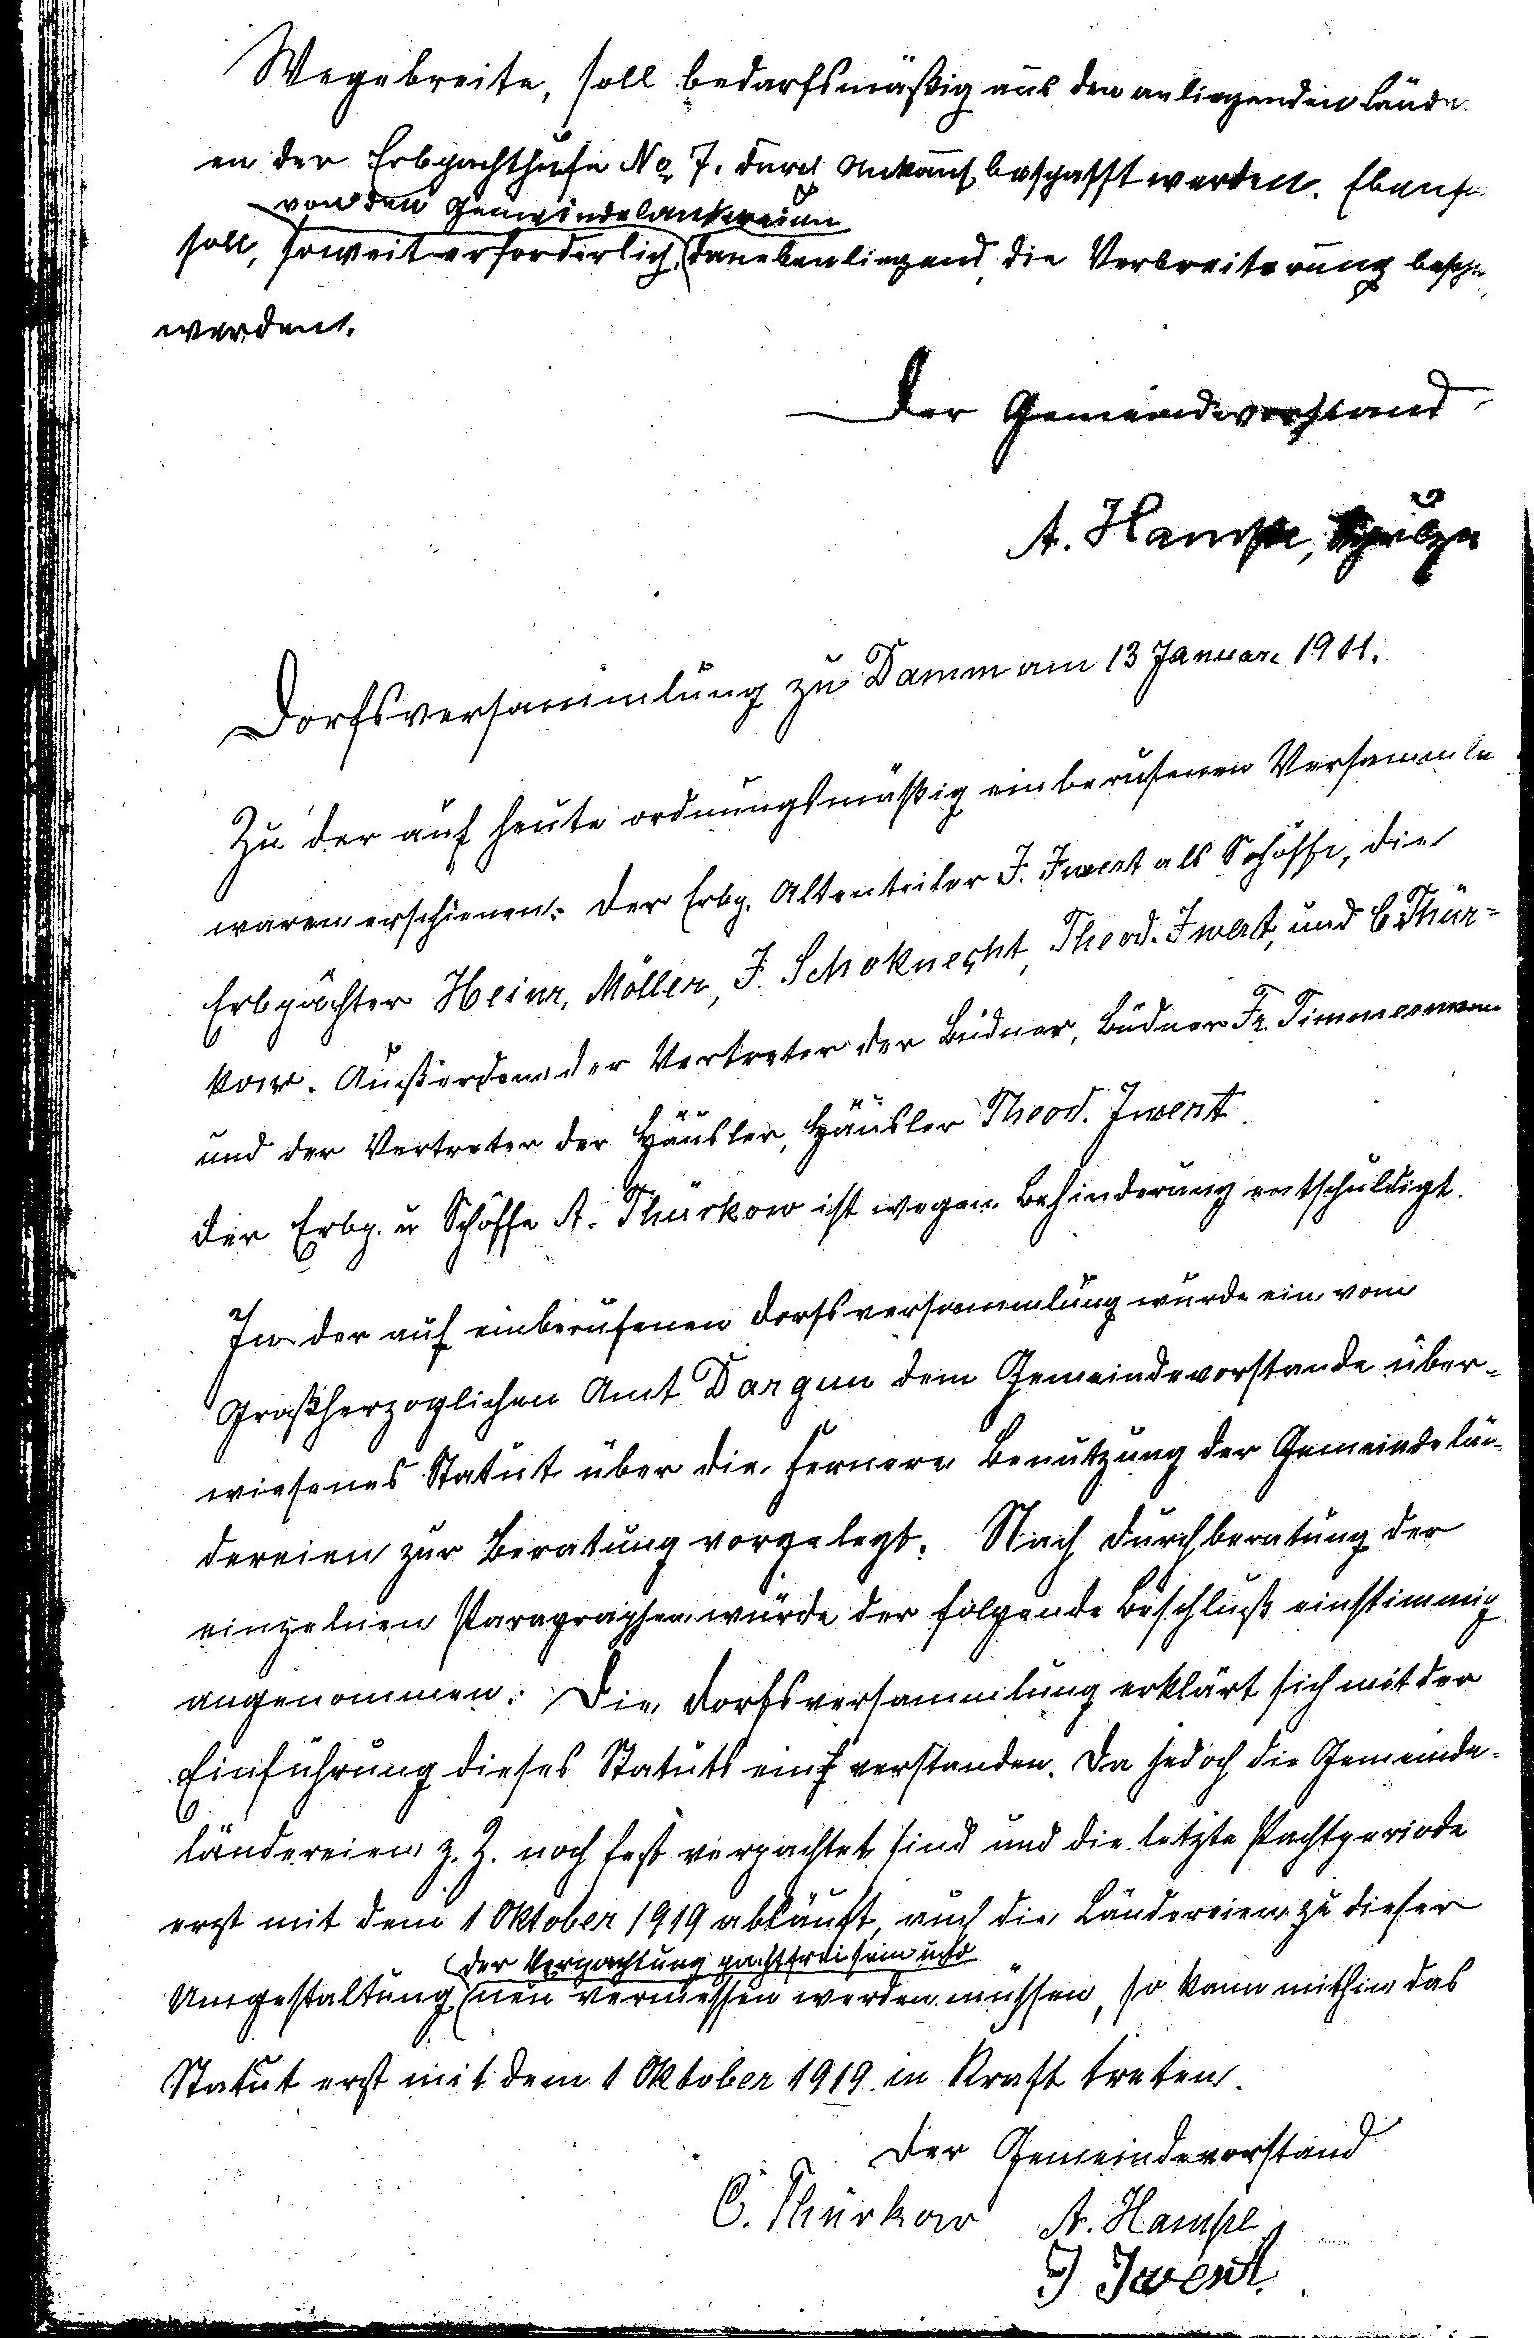 Wegebreite, soll bedarfsmäßig aus den anliegenden Lände
en der Erbpachthufe No 7. durch Ankauf beschafft werden. Ebenso
von den Gemeindeländereien
soll, soweit erforderlich, danebenliegend, die Verbreiterung besch
werden.
Der Gemeindevorstand
A. Hampe, Schulze
Dorfsversammlung zu Damm am 13 Januar 1911.
Zu der auf heute ordnungsmäßig einberufenen Versammlu
waren erschienen: der Erbp. Altenteiler J. Iwert als Schöffe, die
Erbpächter Heinr. Möller, J. Schoknecht, Theod. Iwert, und C Thür-
kow. Außerdem der Vertreter der Büdner, Büdner Fr. Timmermann
und der Vertreter der Häusler, Häusler Theod. Iwert.
der Erbp. u Schöffe A. Thürkow ist wegen Behinderung entschuldigt.
In der auf einberufenen Dorfsversammlung wurde ein vom
Großherzoglichen Amt Dargun dem Gemeindevorstande über-
wiesenes Statut über die fernere Benutzung der Gemeindelän-
dereien zur Beratung vorgelegt. Nach Durchberatung der
einzelnen Paragraphen wurde der folgende Beschluß einstimmig
angenommen: Die Dorfsversammlung erklärt sich mit der
Einführung dieses Statuts einverstanden. Da jedoch die Gemeinde-
ländereien z. Z. noch fest verpachtet sind und die letzte Pachtperiode
erst mit dem 1 Oktober 1919 abläuft, auch die Ländereien zu dieser
der Verpachtung pachtfrei sein und
Umgestaltung neu vermessen werden müssen, so kann mithin das
Statut erst mit dem 1 Oktober 1919 in Kraft treten.
Der Gemeindevorstand
C. Thürkow A. Hampe
J Iwert.